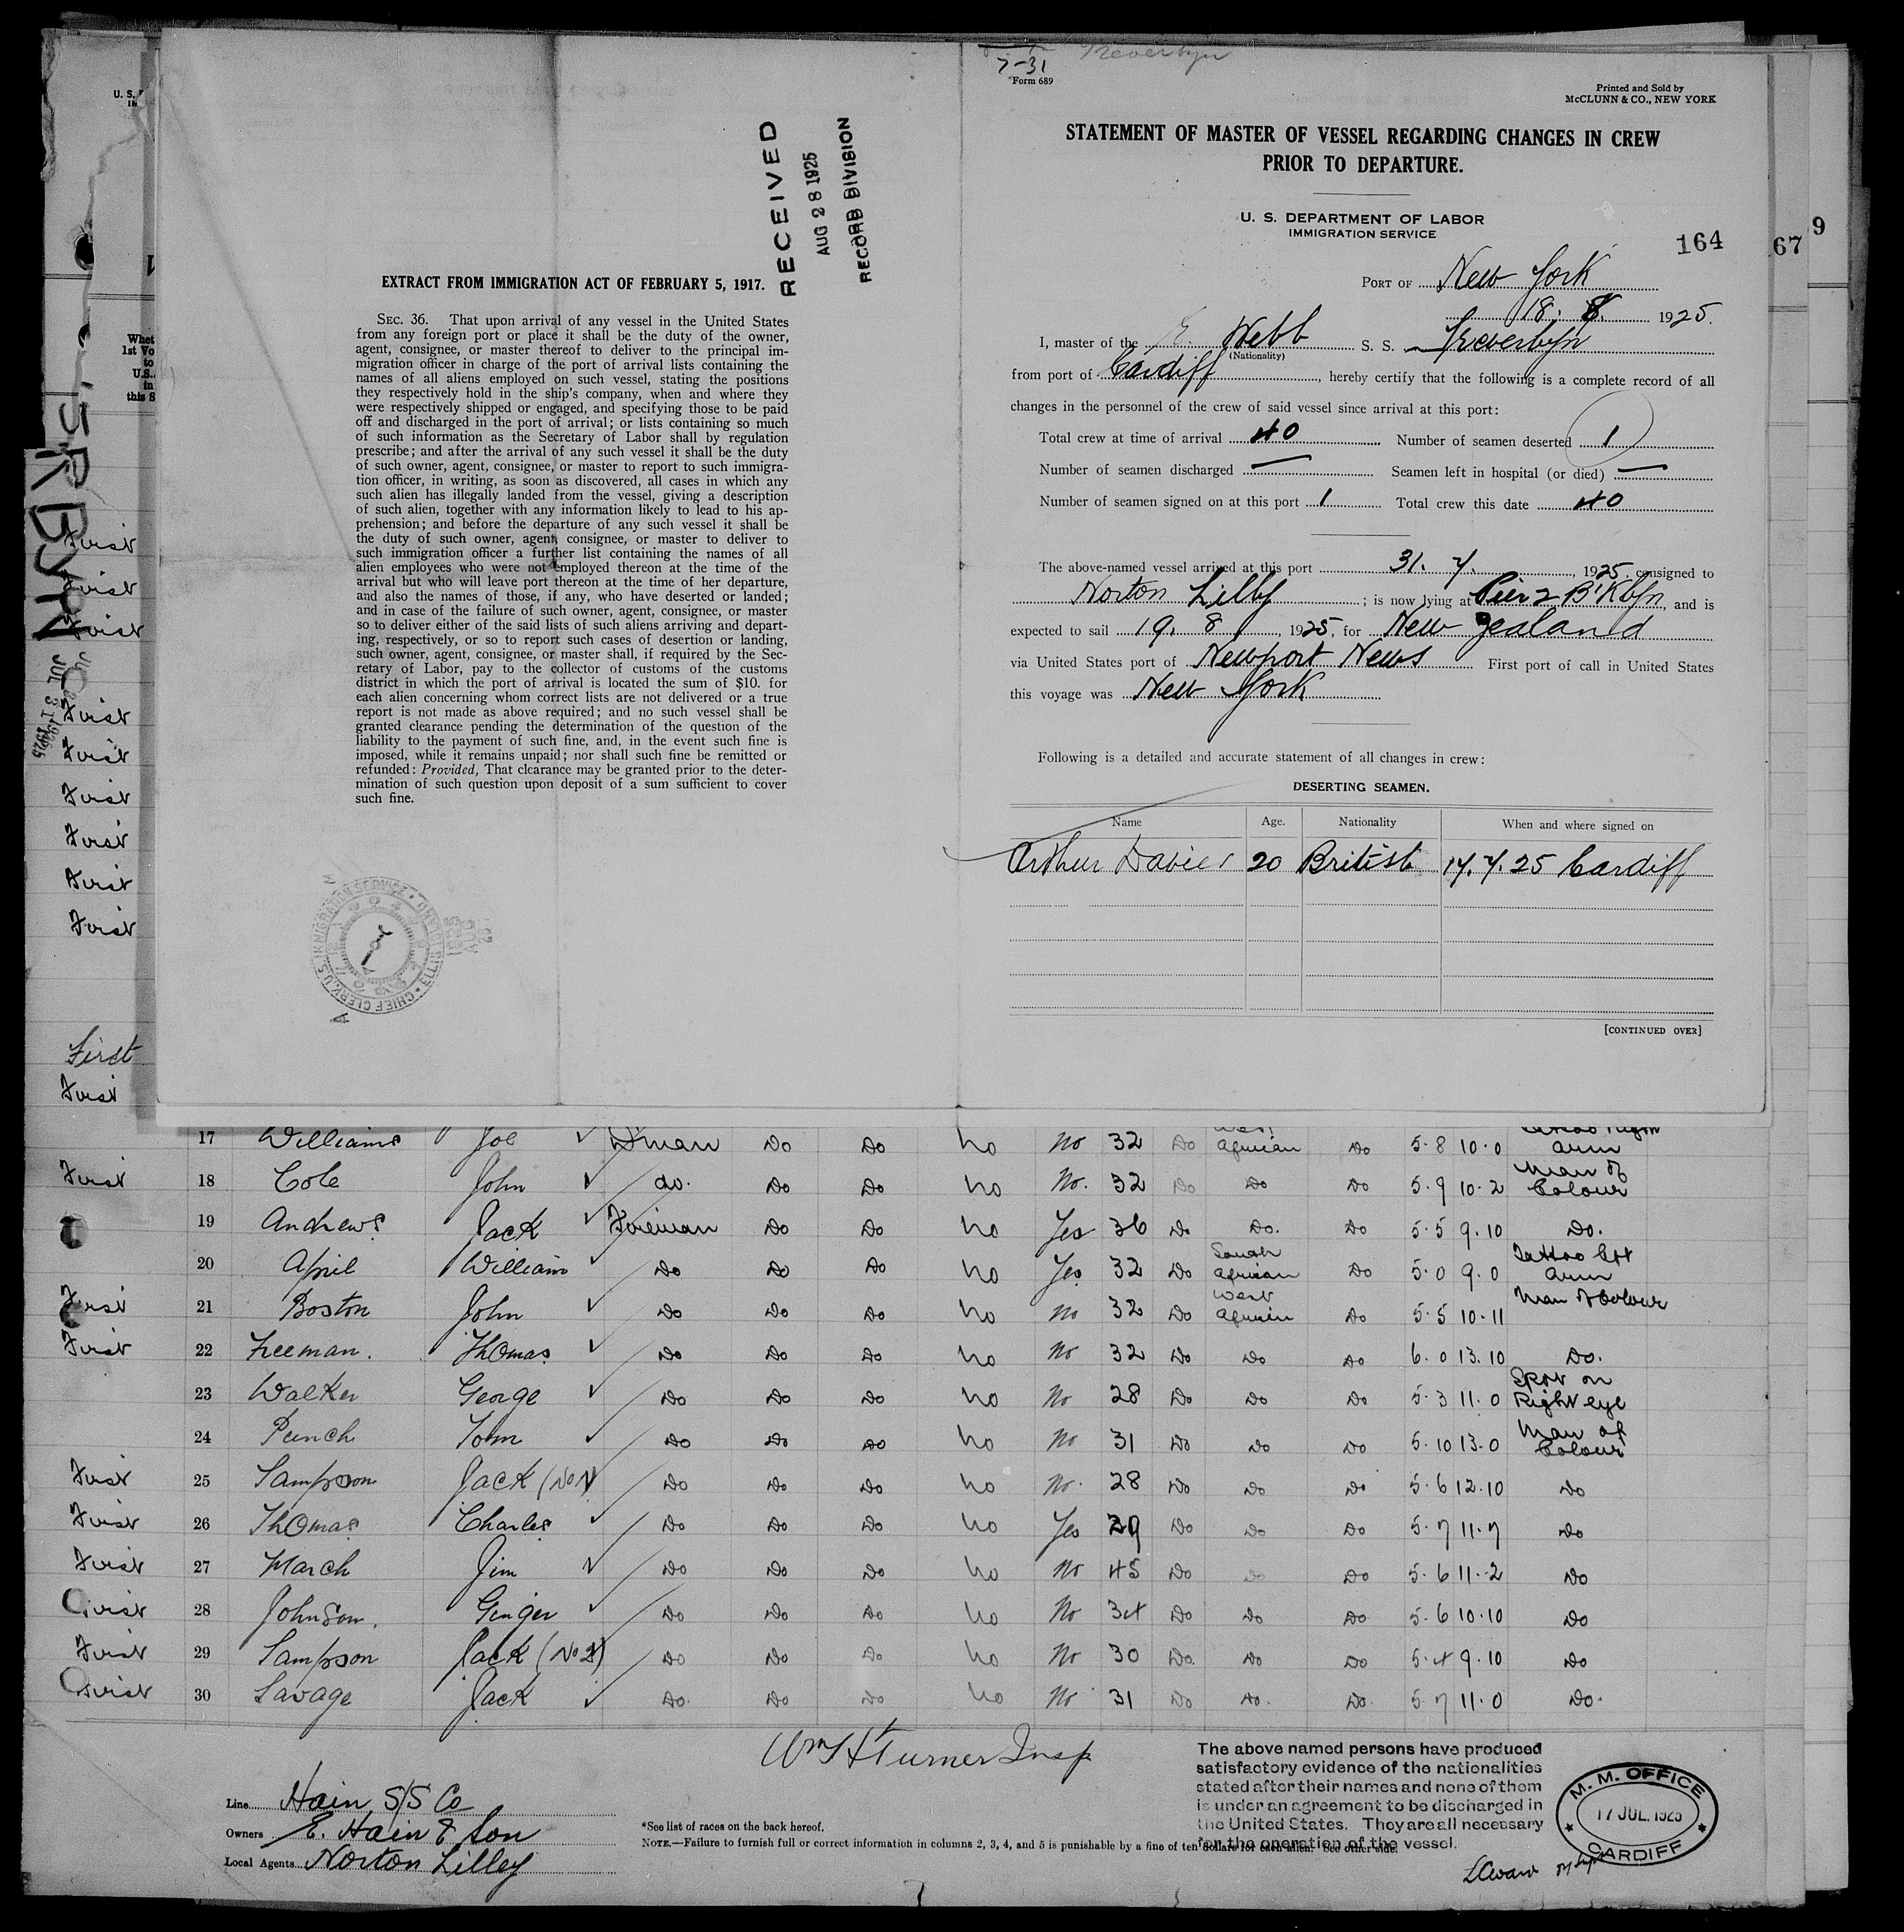 Treverbyn
7-31
Form 689
Printed and Sold by
McCLUNN & CO., NEW YORK
STATEMENT OF MASTER OF VESSEL REGARDING CHANGES IN CREW
PRIOR TO DEPARTURE.
U. S. DEPARTMENT OF LABOR
IMMIGRATION SERVICE
164
67
9
PORT OF New York
18. 8. 1925.
I, master of the E. Webb S. S. Treverbyn
(Nationality)
from port of Cardiff, hereby certify that the following is a complete record of all
changes in the personnel of the crew of said vessel since arrival at this port:
Total crew at time of arrival 40 Number of seamen deserted 1
Number of seamen discharged — Seamen left in hospital (or died) —
Number of seamen signed on at this port 1 Total crew this date 40
The above-named vessel arrived at this port 31. 7. , 1925, consigned to
Norton Lilly ; is now lying at Pier 2 B'Klyn, and is
expected to sail 19. 8 , 1925, for New Zealand
via United States port of Newport News First port of call in United States
this voyage was New York
Following is a detailed and accurate statement of all changes in crew:
DESERTING SEAMEN.
Name Age. Nationality When and where signed on
Arthur Davies 20 British 17.7.25 Cardiff
[CONTINUED OVER]
RECEIVED
AUG 28 1925
RECORD DIVISION
EXTRACT FROM IMMIGRATION ACT OF FEBRUARY 5, 1917.
SEC. 36. That upon arrival of any vessel in the United States
from any foreign port or place it shall be the duty of the owner,
agent, consignee, or master thereof to deliver to the principal im-
migration officer in charge of the port of arrival lists containing the
names of all aliens employed on such vessel, stating the positions
they respectively hold in the ship's company, when and where they
were respectively shipped or engaged, and specifying those to be paid
off and discharged in the port of arrival; or lists containing so much
of such information as the Secretary of Labor shall by regulation
prescribe; and after the arrival of any such vessel it shall be the duty
of such owner, agent, consignee, or master to report to such immigra-
tion officer, in writing, as soon as discovered, all cases in which any
such alien has illegally landed from the vessel, giving a description
of such alien, together with any information likely to lead to his ap-
prehension; and before the departure of any such vessel it shall be
the duty of such owner, agent, consignee, or master to deliver to
such immigration officer a further list containing the names of all
alien employees who were not employed thereon at the time of the
arrival but who will leave port thereon at the time of her departure,
and also the names of those, if any, who have deserted or landed;
and in case of the failure of such owner, agent, consignee, or master
so to deliver either of the said lists of such aliens arriving and depart-
ing, respectively, or so to report such cases of desertion or landing,
such owner, agent, consignee, or master shall, if required by the Sec-
retary of Labor, pay to the collector of customs of the customs
district in which the port of arrival is located the sum of $10. for
each alien concerning whom correct lists are not delivered or a true
report is not made as above required; and no such vessel shall be
granted clearance pending the determination of the question of the
liability to the payment of such fine, and, in the event such fine is
imposed, while it remains unpaid; nor shall such fine be remitted or
refunded: Provided, That clearance may be granted prior to the deter-
mination of such question upon deposit of a sum sufficient to cover
such fine.
CHIEF CLERK, U.S. IMMIGRATION SERVICE
U. S.
Whet
1st Vo
to
U.S.
in
this S
JUL 31 1925
First
First
First
First
First
First
First
First
First
First
First
17 Williams Joe D'man Do Do no No 32 Do West African Do 5.8 10.0 tattoo right arm
First 18 Cole John do. Do Do no No. 32 Do Do Do 5.9 10.2 Man of Colour
19 Andrews Jack Fireman Do Do no Yes 36 Do Do. Do 5.5 9.10 Do.
20 April William Do Do Do no Yes 32 Do South African Do 5.0 9.0 Tattoo left arm
First 21 Boston John Do Do Do no No 32 Do West African Do 5.5 10.11 Man of Colour
First 22 Freeman. Thomas Do Do Do no No 32 Do Do Do 6.0 13.10 Do.
23 Walker George Do Do Do no No 28 Do Do Do 5.3 11.0 Spot on Right eye
24 Punch Tom Do Do Do no No 31 Do Do Do 5.10 13.0 Man of Colour
First 25 Sampson Jack (No 1) Do Do Do no No. 28 Do Do Do 5.6 12.10 Do
First 26 Thomas Charles Do Do Do no Yes 29 Do Do Do 5.7 11.7 Do
First 27 March Jim Do Do Do no No 45 Do Do Do 5.6 11.2 Do
First 28 Johnson. Ginger Do Do Do no No 34 Do Do Do 5.6 10.10 Do
First 29 Sampson Jack (No 2) Do Do Do no No 30 Do. Do Do 5.4 9.10 Do
First 30 Savage Jack Do. Do Do no No 31 Do Do. Do. 5.7 11.0 Do.
Wm H Turner Insp
Line Hain S/S Co
Owners E. Hain & Son
Local Agents Norton Lilley
*See list of races on the back hereof.
NOTE.—Failure to furnish full or correct information in columns 2, 3, 4, and 5 is punishable by a fine of ten dollars for each alien. See other side.
The above named persons have produced
satisfactory evidence of the nationalities
stated after their names and none of them
is under an agreement to be discharged in
the United States. They are all necessary
for the operation of the vessel.
M. M. OFFICE
17 JUL 1925
CARDIFF